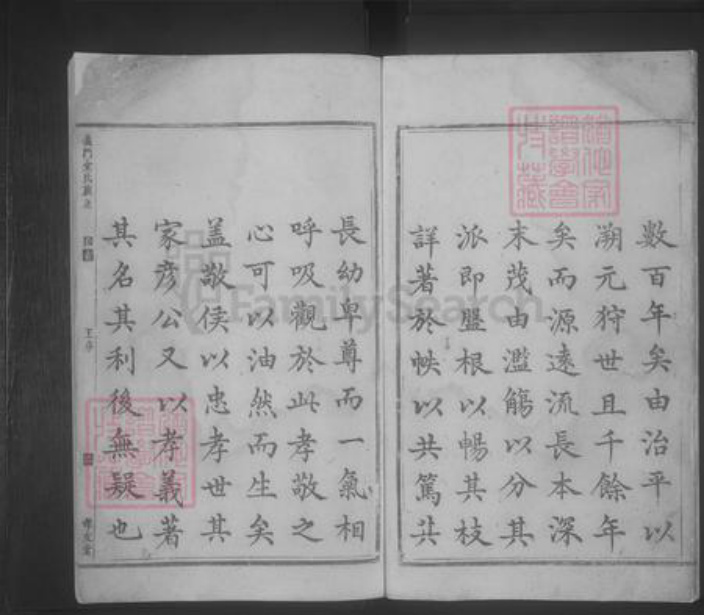 數百年矣由治平以
溯元狩世且千餘年
矣而源遠流長本深
末茂由濫觴以分其
派即盤根以暢其枝
詳著於帙以共篤共
長幼卑尊而一氣相
呼吸觀於此孝敬之
心可以油然而生矣
盖敬侯以忠孝世其
家彦公又以孝義著
其名其利後無疑也
FamilySearch